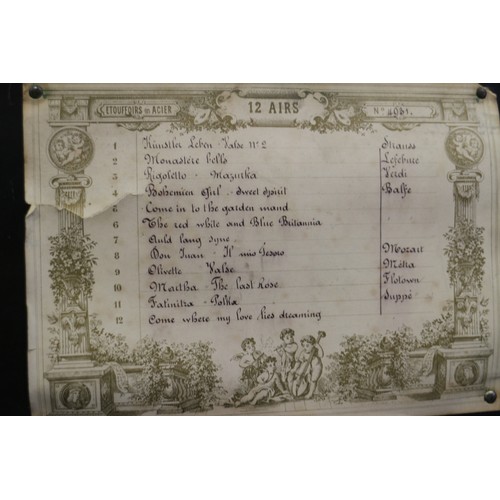 ETOUFFOIRS EN ACIER 12 AIRS No 4951.
1 Künstler Leben - Valse No 2 Strauss
2 Monastère bells Lefebure
3 Rigoletto - Mazurka Verdi
4 Bohemien Girl .. Sweet Spirit Balfe
5 Come in to the garden maud
6 The red white and Blue Britannia
7 Auld lang syne
8 Don Juan - Il mio Tesoro Mozart
9 Olivette Valse Métra
10 Martha - The last Rose Flotown
11 Fatinitza - Polka Suppé
12 Come where my love lies dreaming